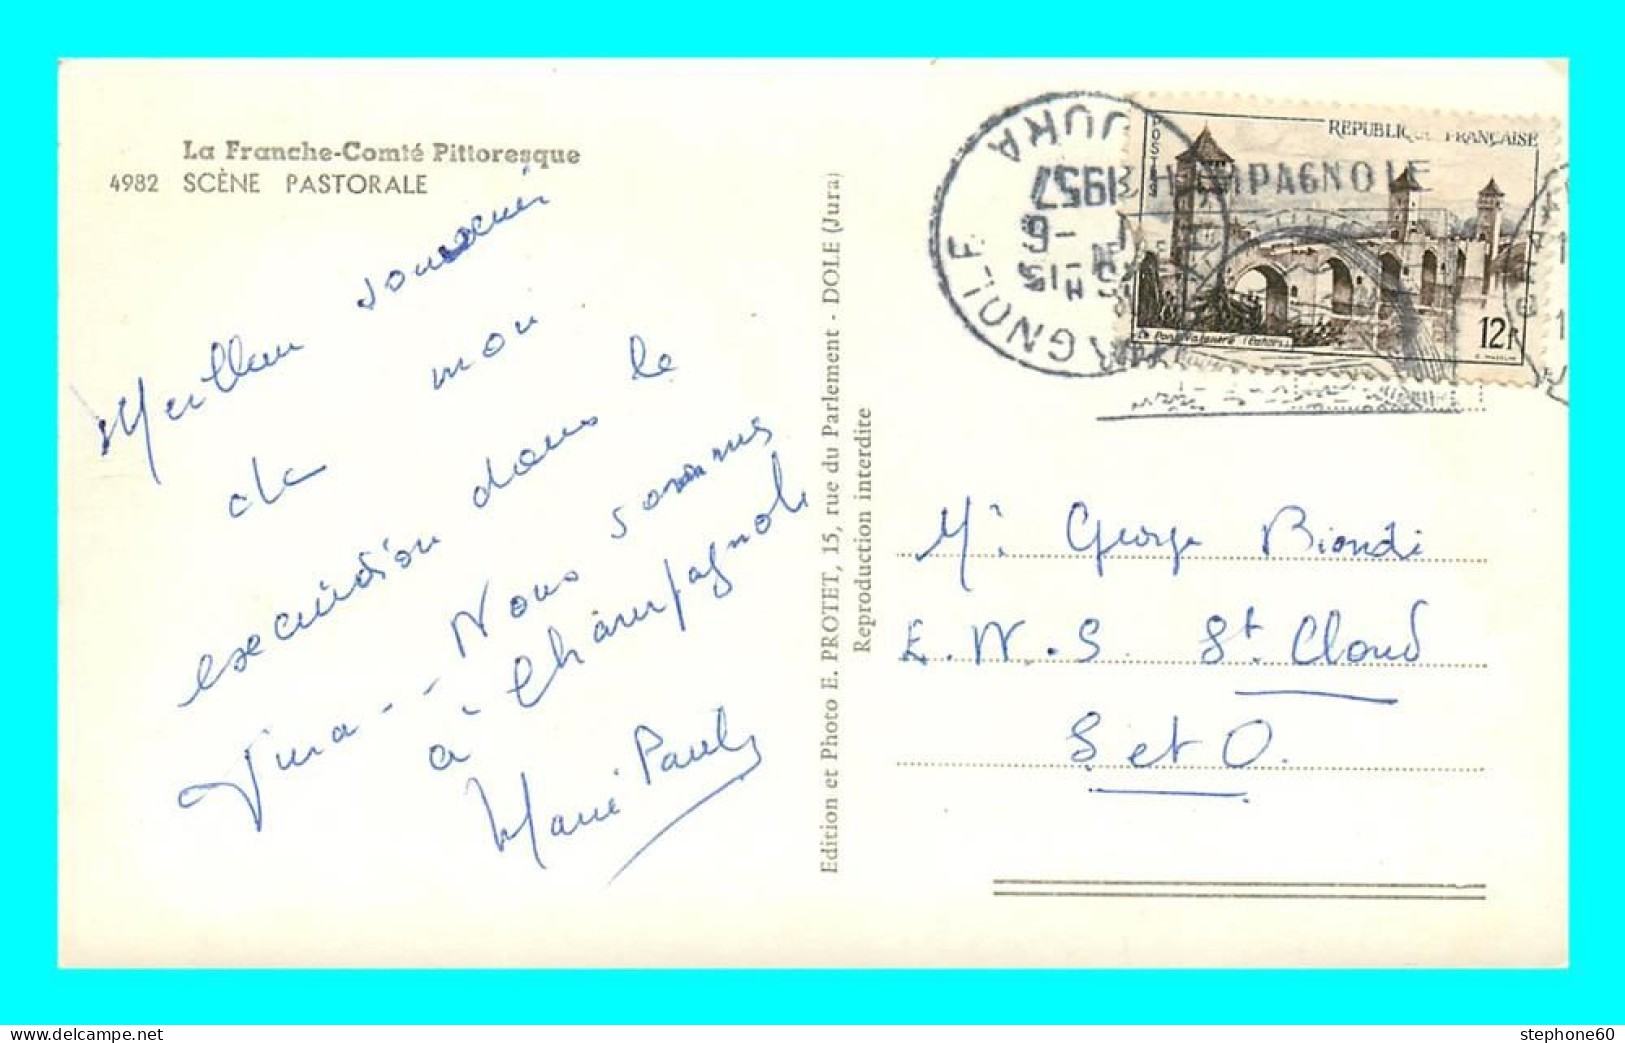 La Franche-Comté Pittoresque
4982 SCÈNE PASTORALE
Meilleur souvenir
de mon
excursion dans le
Jura -- Nous sommes
à Champagnole
Marie Pauly
Edition et Photo E. PROTET, 15, rue du Parlement - DOLE (Jura)
Reproduction interdite
JURA
1957
CHAMPAGNOLE
POSTES
REPUBLIQUE FRANÇAISE
12F
Mr George Biondi
E.N.S. St. Cloud
S et O.
stephone60